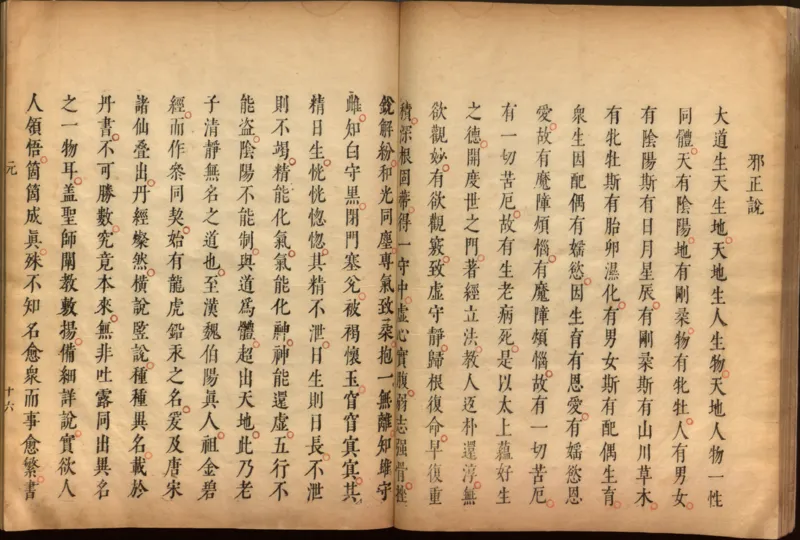 邪正說
大道生天生地天地生人生物天地人物一性
同體天有陰陽地有剛柔物有牝牡人有男女
有陰陽斯有日月星辰有剛柔斯有山川草木
有牝牡斯有胎卵濕化有男女斯有配偶生育
衆生因配偶有嬬慾因生育有恩愛有嬬慾恩
愛故有魔障煩惱有魔障煩惱故有一切苦厄
有一切苦厄故有生老病死是以太上蘊好生
之德開度世之門著經立法教人返朴還淳無
欲觀妙有欲觀竅致虛守靜歸根復命早復重
積深根固蒂得一守中虛心實腹弱志强骨挫
銳解紛和光同塵專氣致柔抱一無離知雄守
雌知白守黑閉門塞兊被褐懷玉窅窅㝠㝠其
精日生恍恍惚惚其精不泄日生則日長不泄
則不竭精能化氣氣能化神神能還虛五行不
能盜陰陽不能制與道爲體超出天地此乃老
子清靜無名之道也至漢魏伯陽眞人祖金碧
經而作參同契始有龍虎鉛汞之名爰及唐宋
諸仙疊出丹經燦然橫說竪說種種異名載於
丹書不可勝數究竟本來無非吐露同出異名
之一物耳盖聖師闡教敷揚備細詳說實欲人
人領悟箇箇成眞殊不知名愈衆而事愈繁書
元
十六